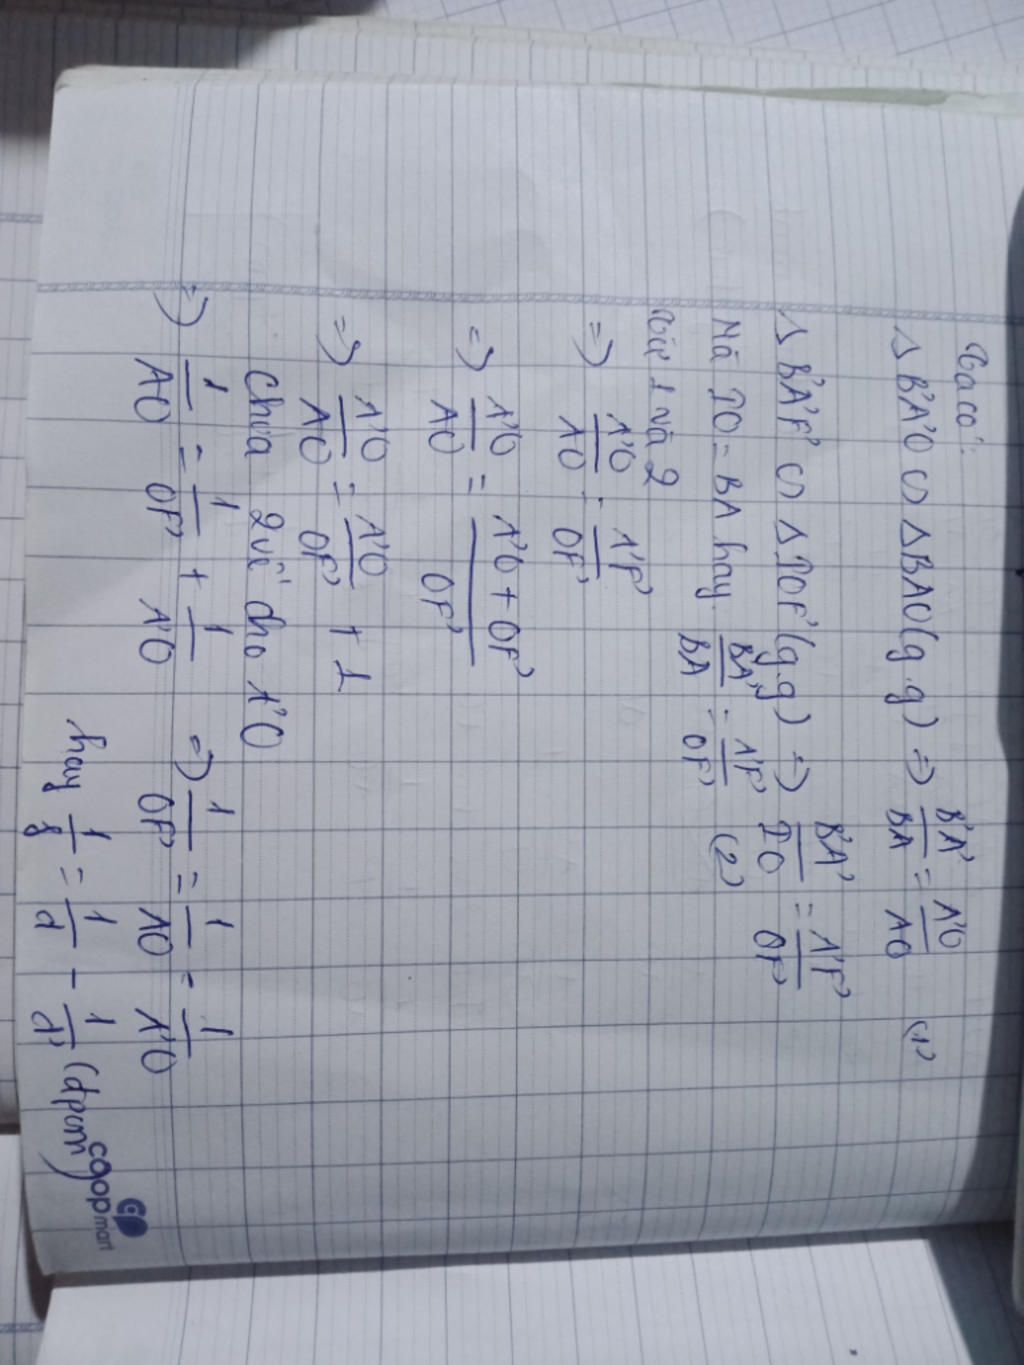 Ta có:
Δ B'A'O ∽ Δ BAO (g.g) => B'A'/BA = A'O/AO (1)
Δ B'A'F' ∽ Δ IOF' (g.g) => B'A'/IO = A'F'/OF'
Mà IO = BA hay B'A'/BA = A'F'/OF' (2)
Từ 1 và 2
=> A'O/AO = A'F'/OF'
=> A'O/AO = (A'O + OF')/OF'
=> A'O/AO = A'O/OF' + 1
Chia 2 vế cho A'O
=> 1/AO = 1/OF' + 1/A'O => 1/OF' = 1/AO - 1/A'O
hay 1/f = 1/d - 1/d' (đpcm)
coopmart